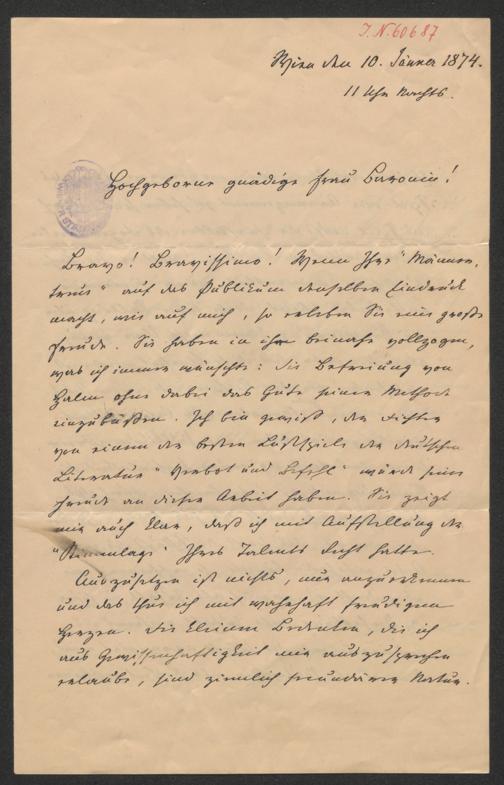 J.N. 60687
Wien den 10. Jänner 1874.
11 Uhr Nachts.
Hochgeborne gnädige Frau Baronin!
Bravo! Bravissimo! Wenn Ihre "Männer-
treue" auf das Publikum denselben Eindruck
macht, wie auf mich, so erleben Sie eine große
Freude. Sie haben in ihr beinahe vollzogen,
was ich immer wünschte: die Befreiung von
Halm ohne dabei das Gute seiner Methode
einzubüßen. Ich bin gewiß, der Dichter
von einem der besten Lustspiele der deutschen
Literatur "Verbot und Befehl" würde seine
Freude an dieser Arbeit haben. Sie zeigt
mir auch klar, daß ich mit Aufstellung der
Ihres Talents Recht hatte.
Auszusetzen ist nichts, nur anzuerkennen
und das thue ich mit wahrhaft freudigem
Herzen. Die kleinen Bedenken, die ich
aus Gewissenhaftigkeit mir auszusprechen
erlaube, sind ziemlich secundärer Natur.